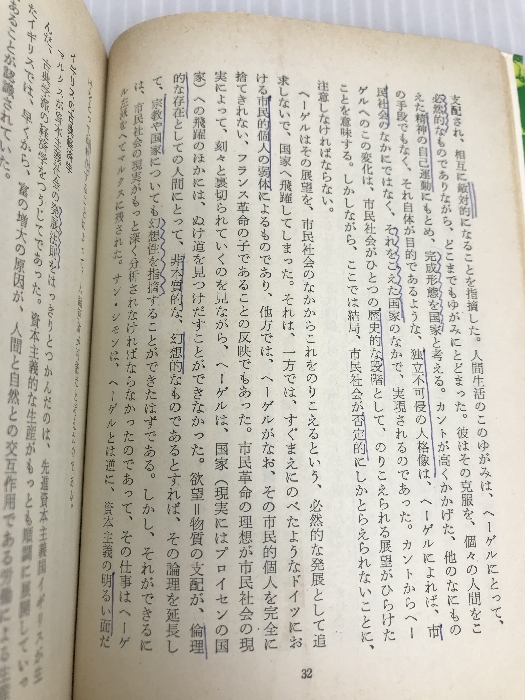 支配され、相互に敵対的になることを指摘した。人間生活のこのゆがみは、ヘーゲルにとって、
必然的なものでありながら、どこまでもゆがみにとどまった。彼はその克服を、個々の人間をこ
えた精神の自己運動にもとめ、完成形態を国家と考える。カントが高くかかげた、他のなにもの
の手段でもなく、それ自体が目的であるような、独立不可侵の人格像は、ヘーゲルによれば、市
民社会のなかにではなく、それをこえた国家のなかで、実現されるのであった。カントからヘー
ゲルへのこの変化は、市民社会がひとつの歴史的な段階として、のりこえられる展望がひらけた
ことを意味する。しかしながら、ここでは結局、市民社会が否定的にしかとらえられないことに、
注意しなければならない。
ヘーゲルはその展望を、市民社会のなかからこれをのりこえるという、必然的な発展として追
求しないで、国家へ飛躍してしまった。それは、一方では、すぐまえにのべたようなドイツにお
ける市民的個人の弱体によるものであり、他方では、ヘーゲルがなお、その市民的個人を完全に
捨てきれない、フランス革命の子であることの反映でもあった。市民革命の理想が市民社会の現
実によって、刻々と裏切られていくのを見ながら、ヘーゲルは、国家（現実にはプロイセンの国
家）への飛躍のほかには、ぬけ道を見つけだすことができなかった。欲望＝物質の支配が、倫理
的な存在としての人間にとって、非本質的な、幻想的なものであるとすれば、その論理を延長し
て、宗教や国家についても幻想性を指摘することができたはずである。しかし、それができるに
は、市民社会の現実がもっと深く分析されなければならなかったのであって、その仕事はヘーゲ
ル左派をへてマルクスに残された。サン・シモンは、ヘーゲルとは逆に、資本主義の明るい面だ
イギリスの古典経済学
資本主義社会の発展法則をはっきりとつかんだのは、先進資本主義国イギリスが生
んだ、古典学派の経済学をつうじてであった。資本主義的な生産がもっとも順調に
たイギリスでは、早くから、富の増大の原因が、人間と自然との交互作用である
あることが認識されていた。
32